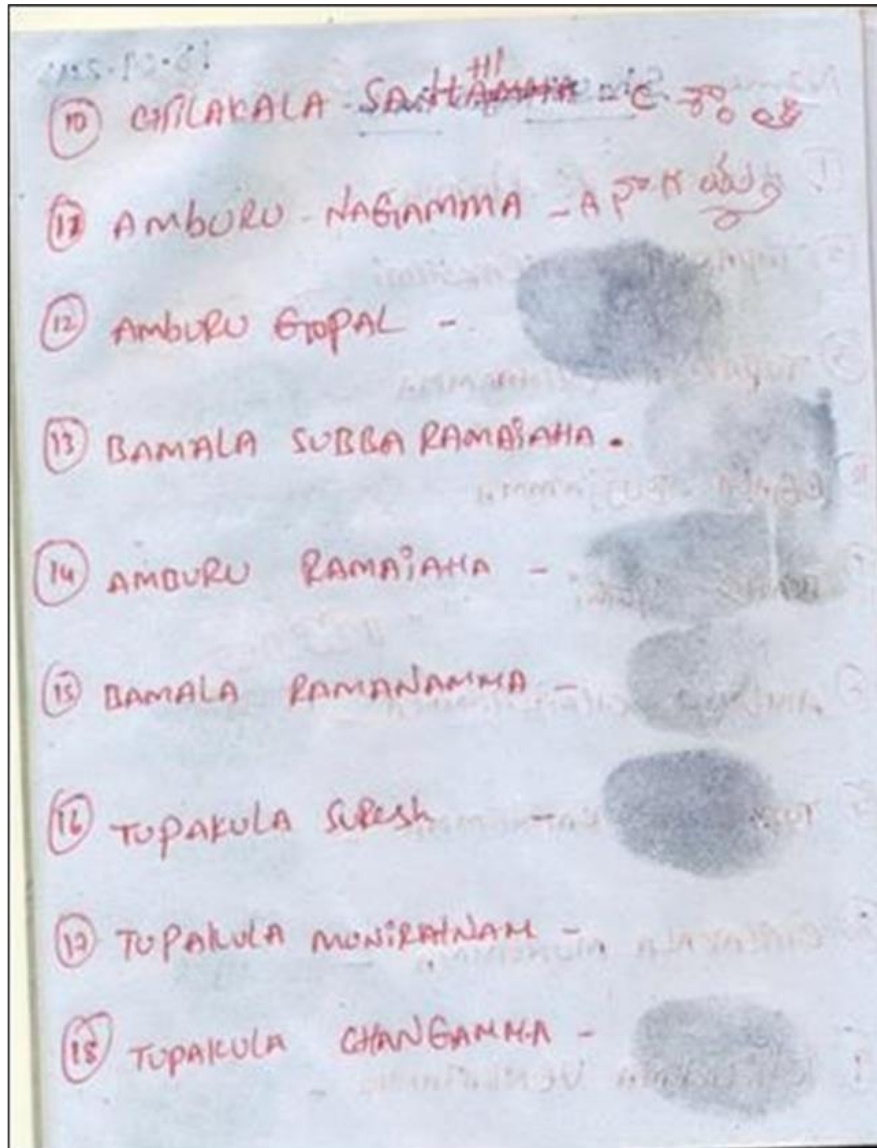 (10) CHILAKALA - SANTHI
(11) AMBURU - NAGAMMA -
(12) AMBURU GOPAL -
(13) BAMALA SUBBA RAMAiAHA -
(14) AMBURU RAMAiAHA -
(15) BAMALA RAMANAMMA -
(16) TUPAKULA SURESH -
(17) TUPAKULA MUNIRATNAM -
(18) TUPAKULA CHANGAMMA -